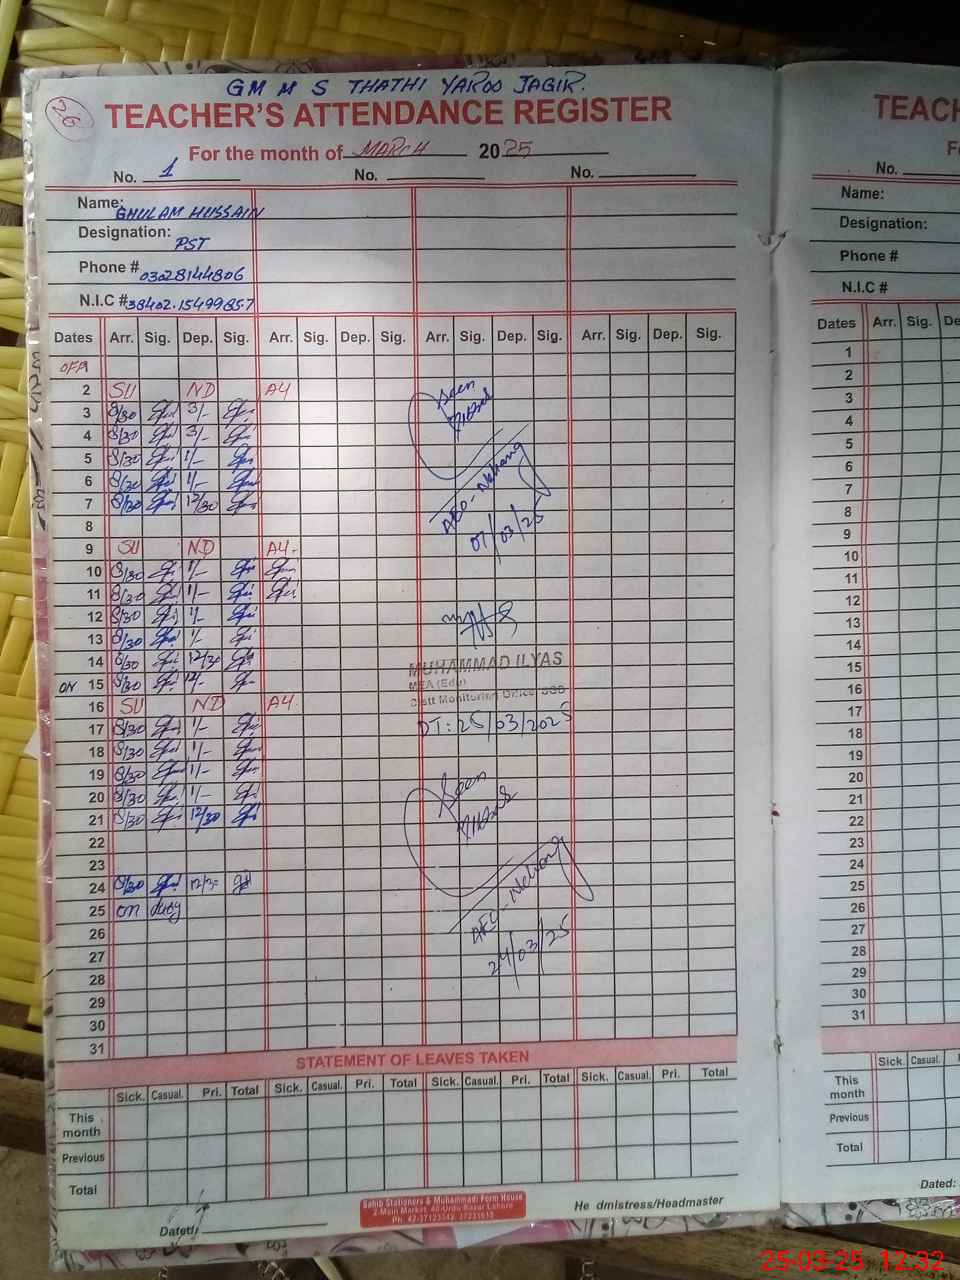 26
GM M S THATHI YAROO JAGIR.
TEACHER'S ATTENDANCE REGISTER
For the month of MARCH 2025
No. 1 No. No.
Name: GHULAM HUSSAIN
Designation: PST
Phone # 03028144806
N.I.C # 38402.1549985.7
Dates Arr. Sig. Dep. Sig. Arr. Sig. Dep. Sig. Arr. Sig. Dep. Sig. Arr. Sig. Dep. Sig.
1
2 SU ND A4
3 8/30 3/-
4 8/30 3/-
5 8/30 1/-
6 8/30 1/-
7 8/30 12/30
8
9 SU ND A4.
10 8/30 1/-
11 8/30 1/-
12 8/30 1/-
13 8/30 1/-
14 8/30 12/30
ON 15 8/30
16 SU ND A4.
17 8/30 1/-
18 8/30 1/-
19 8/30 1/-
20 8/30 1/-
21 8/30 12/30
22
23
24 8/30
25 on duty
26
27
28
29
30
31
Seen
AEO-Nehang
07/03/25
MUHAMMAD ILYAS
MEA (Edu)
Distt Monitoring Office
DT: 25/03/2025
Seen
AEO-Nehang
24/03/25
STATEMENT OF LEAVES TAKEN
Sick. Casual. Pri. Total Sick. Casual. Pri. Total Sick. Casual. Pri. Total Sick. Casual. Pri. Total
This month
Previous
Total
Dated:
Sahib Stationers & Muhammadi Form House
2-Main Market, 40-Urdu Bazar Lahore
He dmistress/Headmaster
TEACH
F
No.
Name:
Designation:
Phone #
N.I.C #
Dates Arr. Sig. De
1
2
3
4
5
6
7
8
9
10
11
12
13
14
15
16
17
18
19
20
21
22
23
24
25
26
27
28
29
30
31
Sick. Casual.
This month
Previous
Total
Dated:
25-03-25 12:32